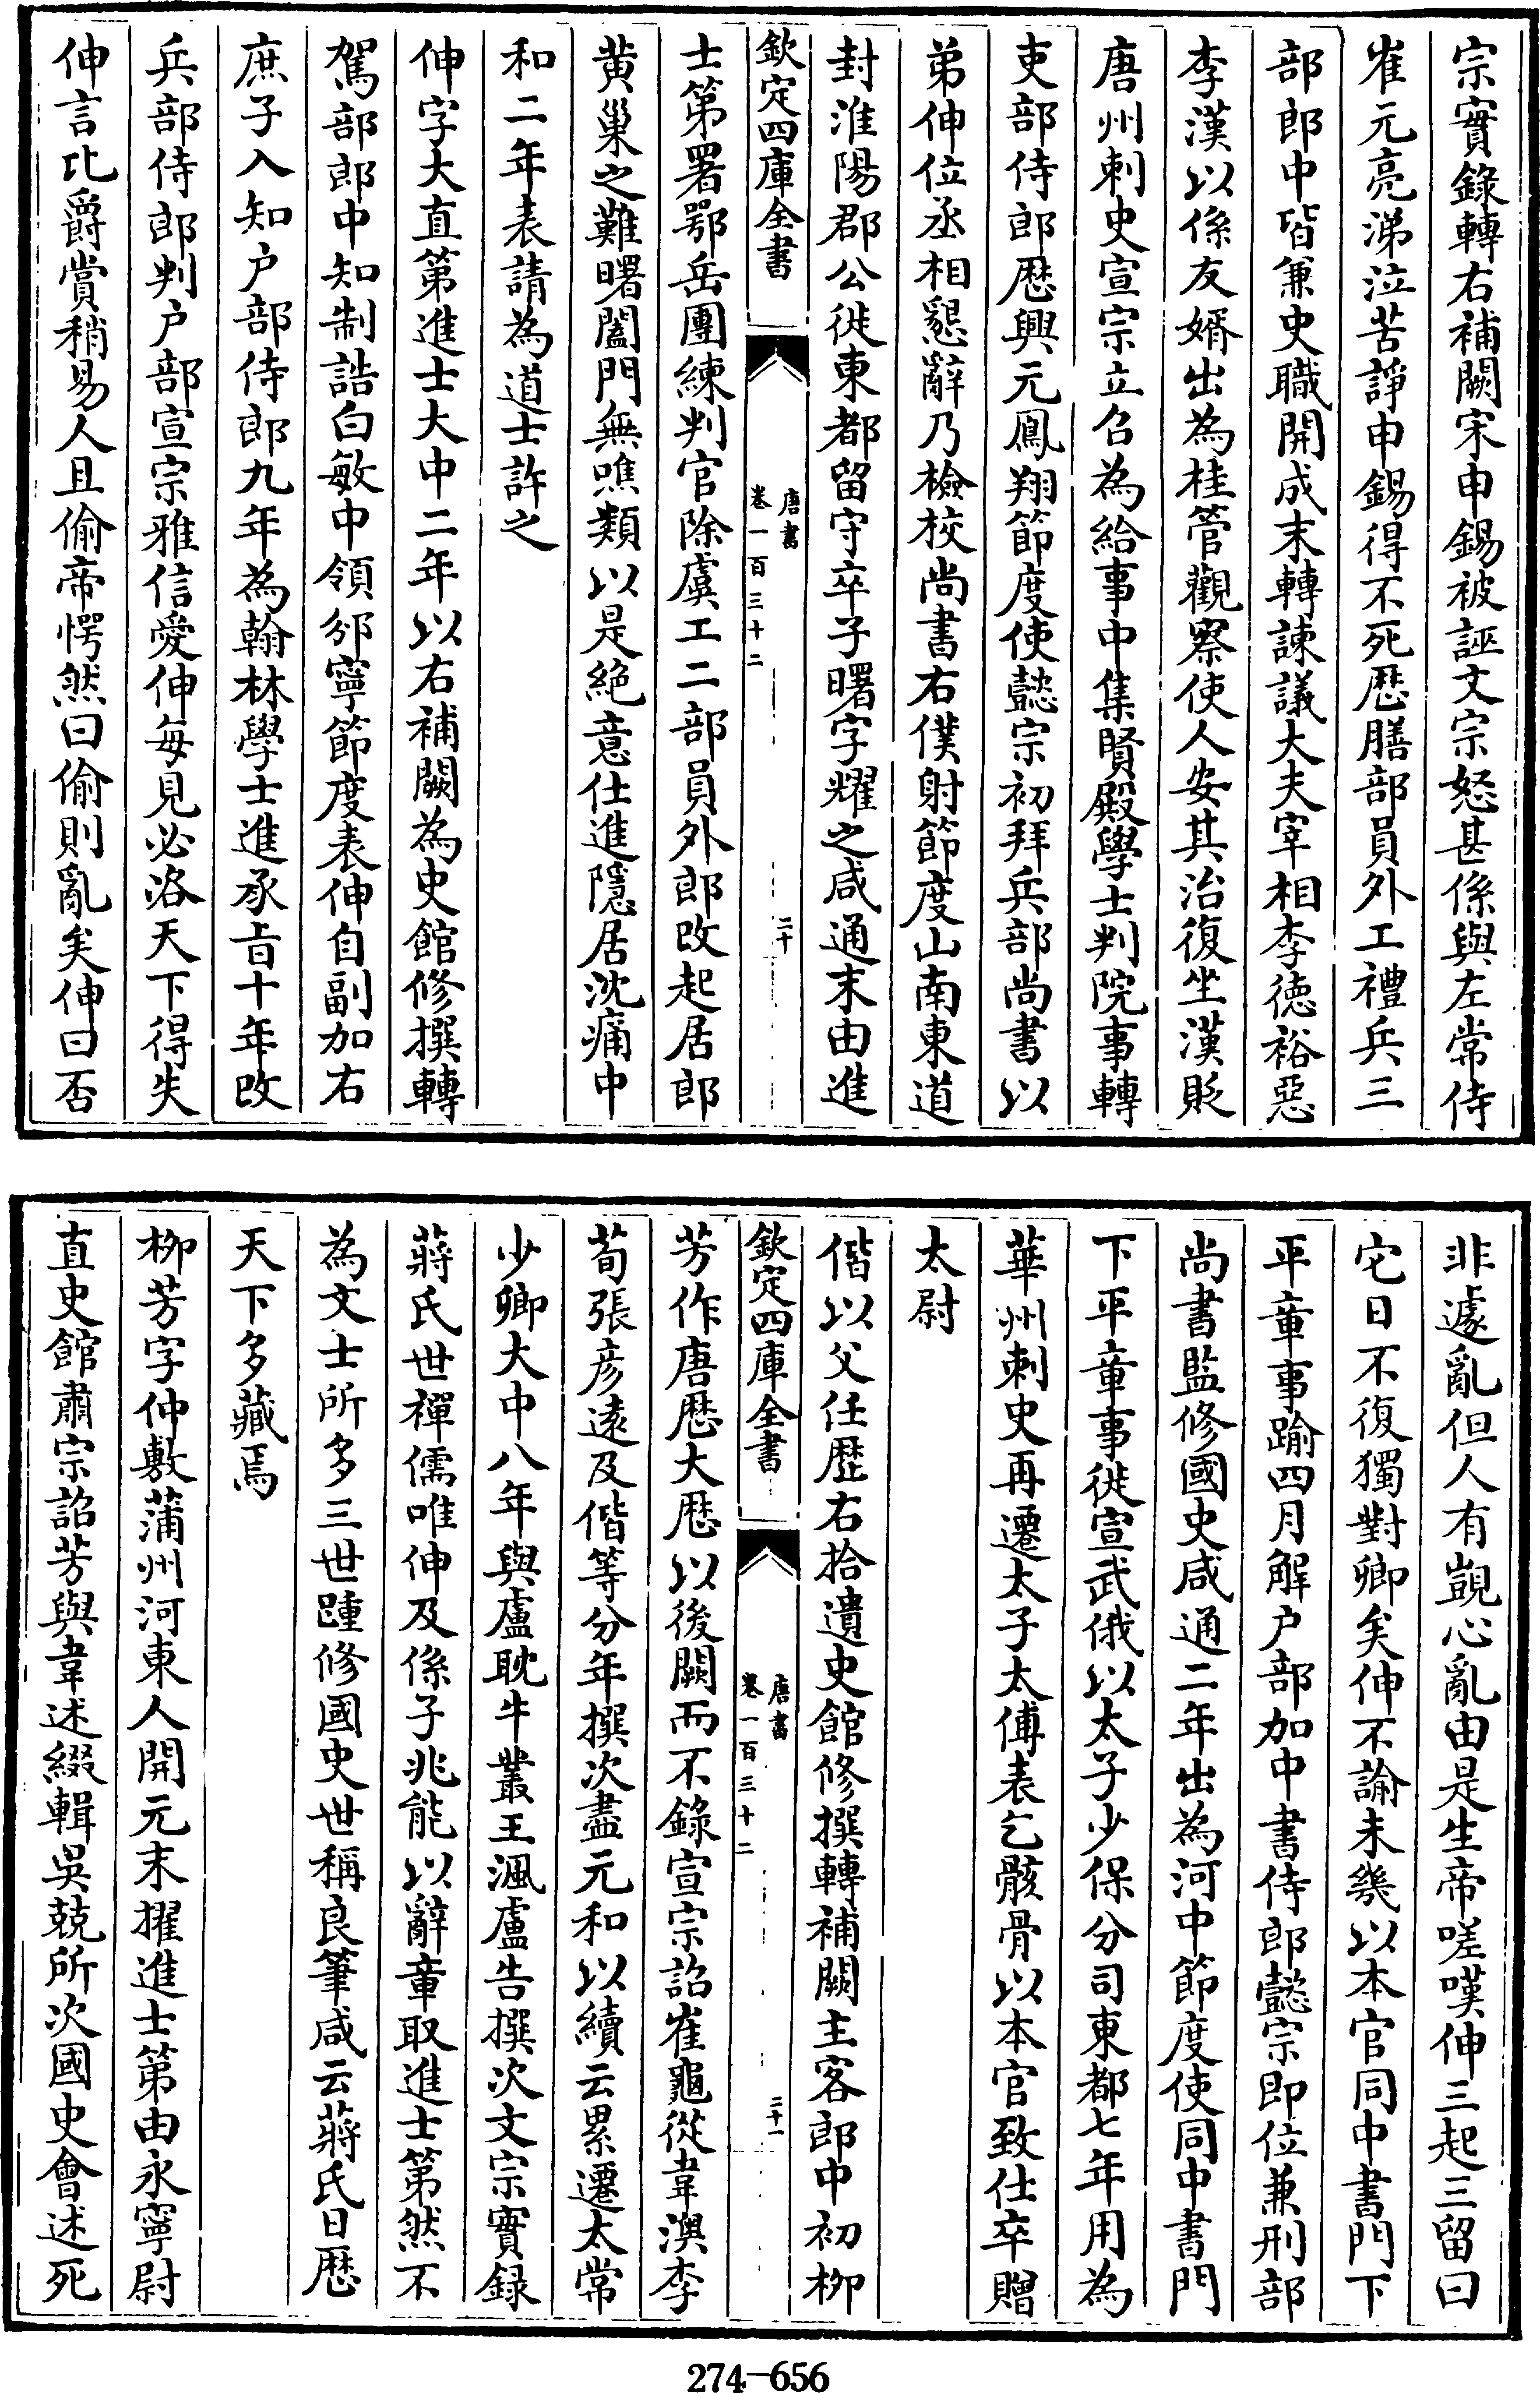 宗實錄轉右補闕宋申錫被誣文宗怒甚係與左常侍
崔元亮涕泣苦諍申錫得不死歴膳部員外工禮兵三
部郎中皆兼史職開成末轉諫議大夫宰相李徳裕惡
李漢以係友婿出為桂管觀察使人安其治復坐漢貶
唐州刺史宣宗立召為給事中集賢殿學士判院事轉
吏部侍郎歴興元鳳翔節度使懿宗初拜兵部尚書以
弟伸位丞相懇辭乃檢校尚書右僕射節度山南東道
封淮陽郡公徙東都留守卒子曙字耀之咸通末由進
欽定四庫全書
唐書
卷一百三十二
二十
士第署鄂岳團練判官除虞工二部員外郎改起居郎
黄巢之難曙闔門無噍類以是絶意仕進隱居沈痛中
和二年表請為道士許之
伸字大直第進士大中二年以右補闕為史館修撰轉
駕部郎中知制誥白敏中領邠寧節度表伸自副加右
庶子入知户部侍郎九年為翰林學士進承㫖十年改
兵部侍郎判户部宣宗雅信愛伸每見必洛天下得失
伸言比爵賞稍易人且偷帝愕然曰偷則亂矣伸曰否
非遽亂但人有覬心亂由是生帝嗟嘆伸三起三留曰
它日不復獨對卿矣伸不諭未幾以本官同中書門下
平章事踰四月解户部加中書侍郎懿宗即位兼刑部
尚書監修國史咸通二年出為河中節度使同中書門
下平章事徙宣武俄以太子少保分司東都七年用為
華州刺史再遷太子太傅表乞骸骨以本官致仕卒贈
太尉
偕以父任歴右拾遺史館修撰轉補闕主客郎中初栁
欽定四庫全書
唐書
卷一百三十二
二十一
芳作唐歴大歴以後闕而不錄宣宗詔崔龜從韋澳李
荀張彦遠及偕等分年撰次盡元和以續云累遷太常
少卿大中八年與盧耽牛叢王渢盧告撰次文宗實録
蔣氏世禪儒唯伸及係子兆能以辭章取進士第然不
為文士所多三世踵修國史世稱良筆咸云蔣氏日歴
天下多藏焉
栁芳字仲敷蒲州河東人開元末擢進士第由永寧尉
直史館肅宗詔芳與韋述綴輯吳兢所次國史會述死
274-656